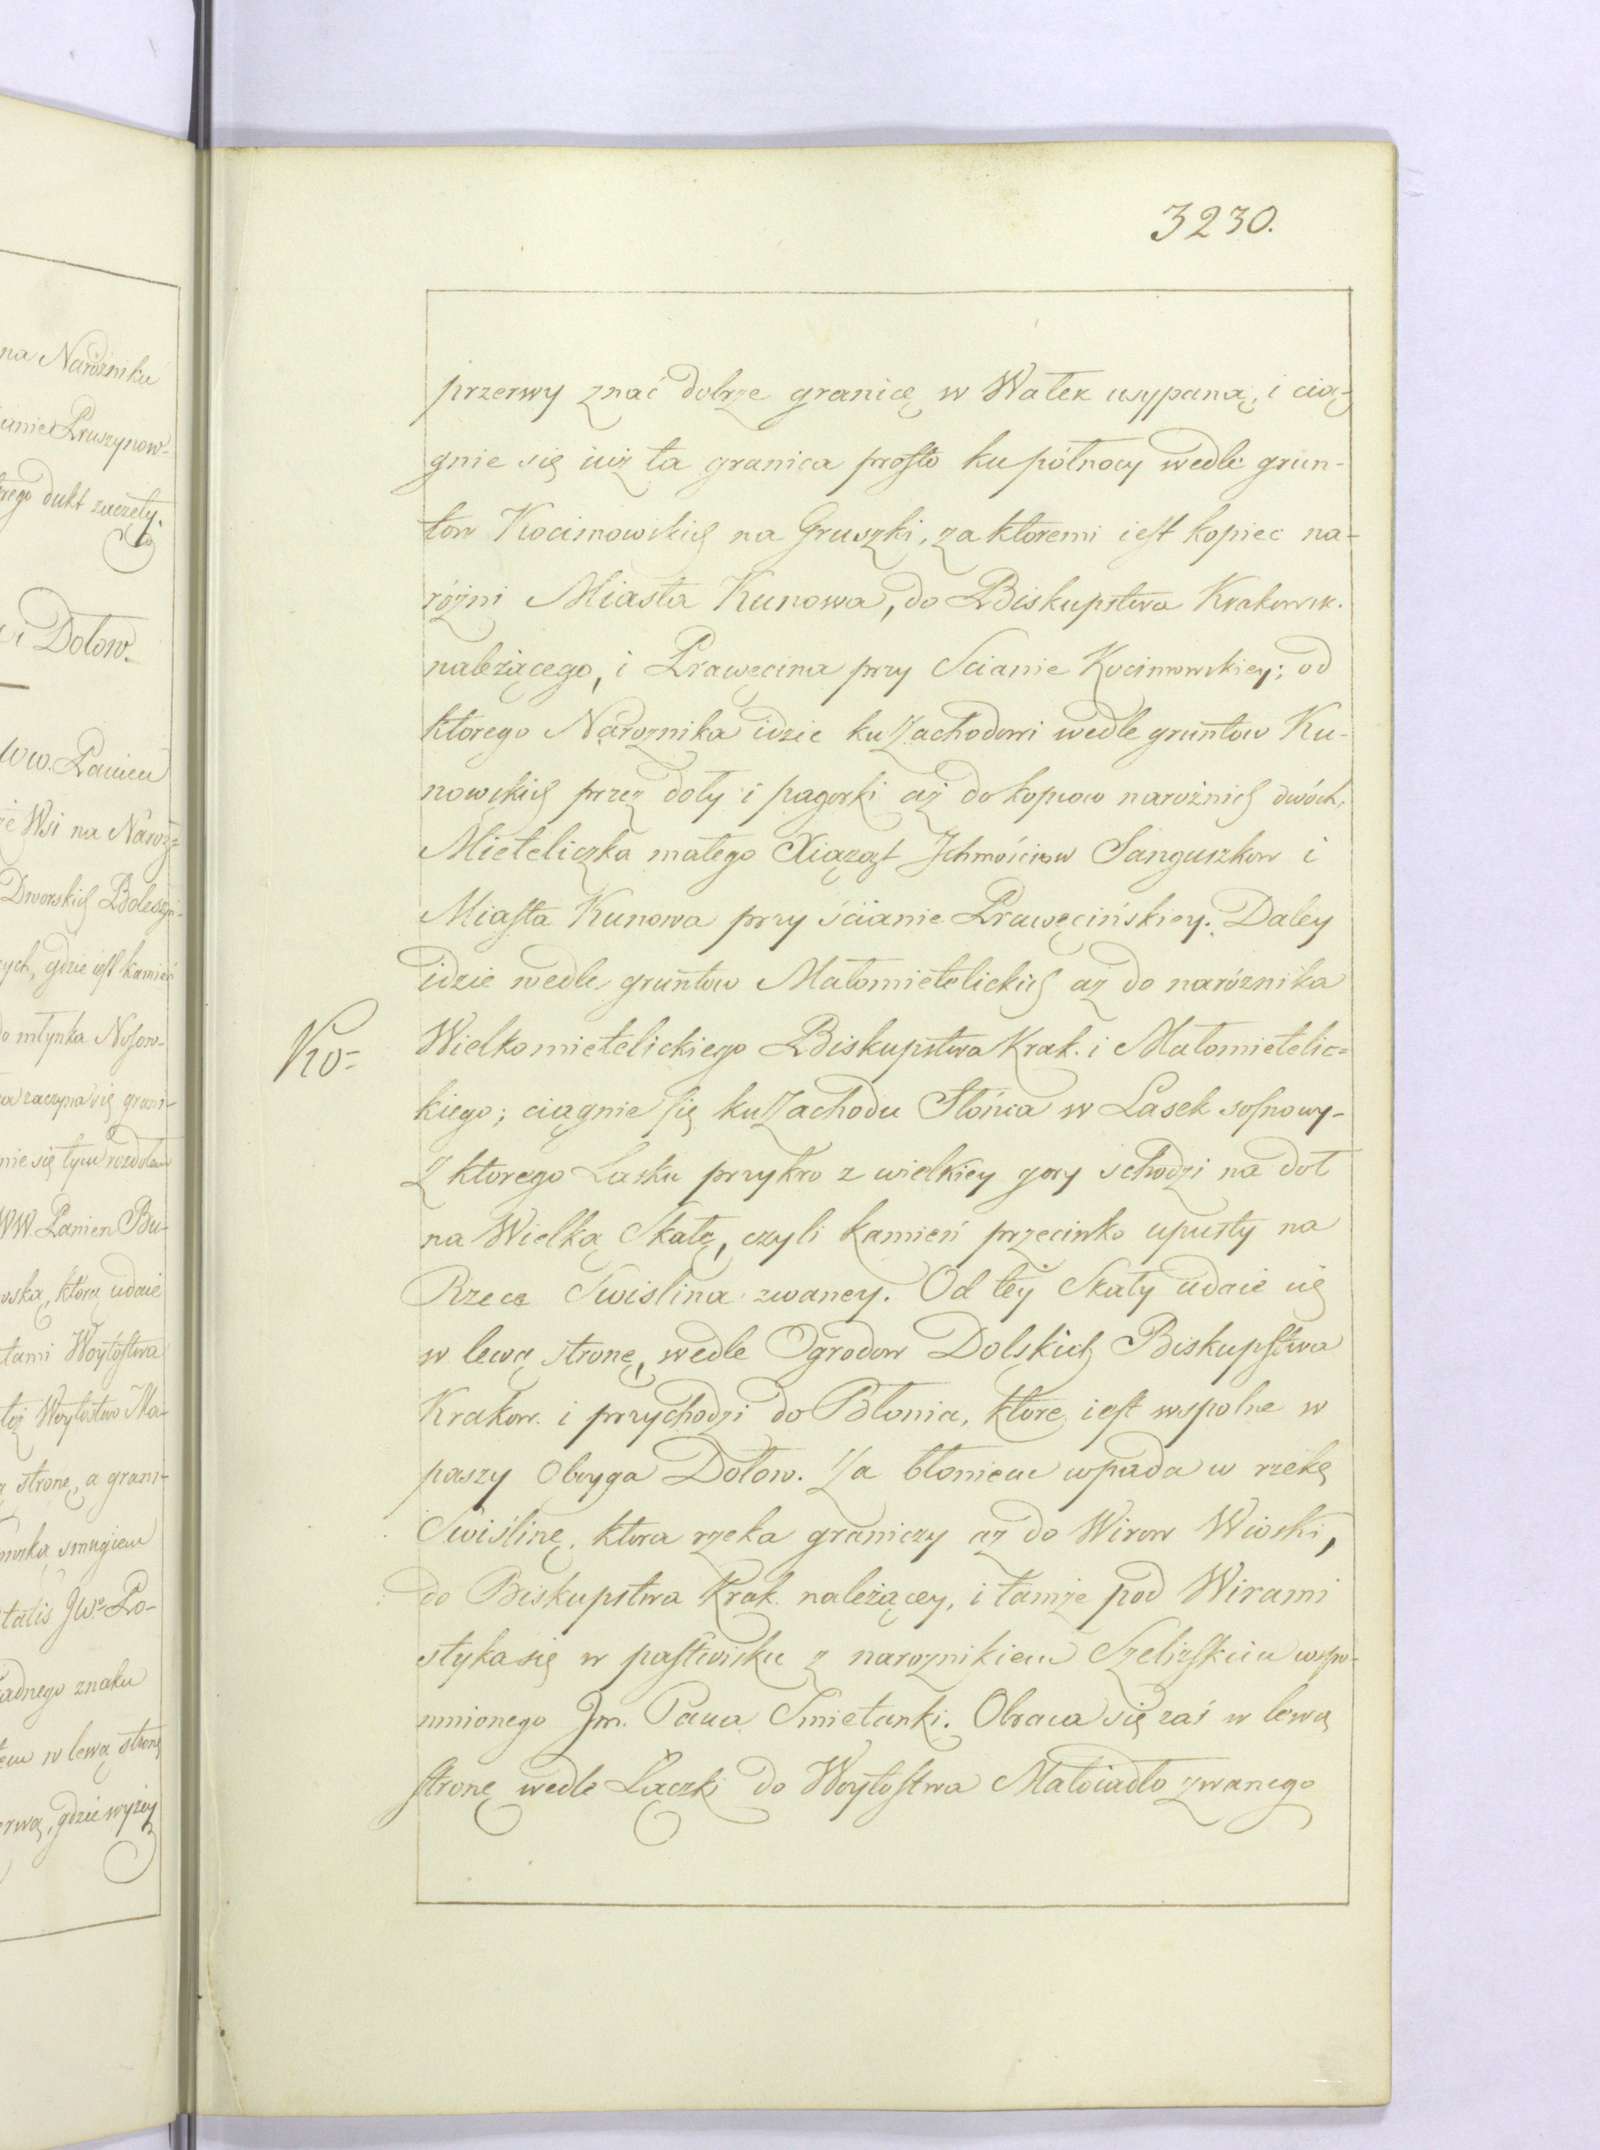 3230.
przerwy znać dobrze granicę w Wałek usypaną, i cią-
gnie się iuż ta granica prosto ku północy wedle grun-
tow Kocimowskich na Gruszki, za ktoremi iest kopiec na-
rożni Miasta Kunowa, do Biskupstwa Krakowsk.
należącego, i Prawęcina przy Scianie Kocimowskiey; od
ktorego Naroznika idzie ku Zachodowi wedle gruntow Ku-
nowskich przez doły i pagorki aż do kopcow narożnich dwóch,
Mieteliczka małego Xiążąt Jchmościow Sanguszkow i
Miasta Kunowa przy ścianie Prawęcińskiey. Daley
idzie wedle gruntow Małomietelickich aż do naróznika
Wielkomietelickiego Biskupstwa Krak. i Małomietelic=
kiego; ciągnie się ku Zachodu Słońca w Lasek sosnowy-
Z ktorego Lasku przykro z wielkiey gory schodzi na doł
na Wielką Skałę, czyli kamień przeciwko upusty na
Rzece Swislina zwaney. Od tey Skały udaie się
w lewą stronę, wedle Ogrodow Dolskich Biskupstwa
Krakow. i przychodzi do Błonia, ktore iest wspolne w
paszy Oboyga Dołow. Za błoniem wpada w rzekę
Swiślinę, ktora rzeka graniczy aż do Wirow Wioski,
do Biskupstwa Krak. należącey, i tamże pod Wirami
styka się w pastwisku z naroznikiem Szeliskim wspo-
mnionego Jm. Pana Smietanki. Obraca się zaś w lewą
stronę wedle Łączki do Woytostwa Małoiadło zwanego
Ko=
na Narożniku
Pruszynow-
dukt zaczęty.
i Dołow.
WW. Panien
Wsi na Naroż=
Dworskich Boleszyn-
gdzie iest kamień
do młynka Nosow-
zaczyna się grani-
się tym rozdołem
WW. Panien Bu-
którą udaie
Woytostwa
też Woytostwo Ma-
stronę, a grani-
smugiem
JWo. Po-
żadnego znaku
w lewą stronę
gdzie wyżey